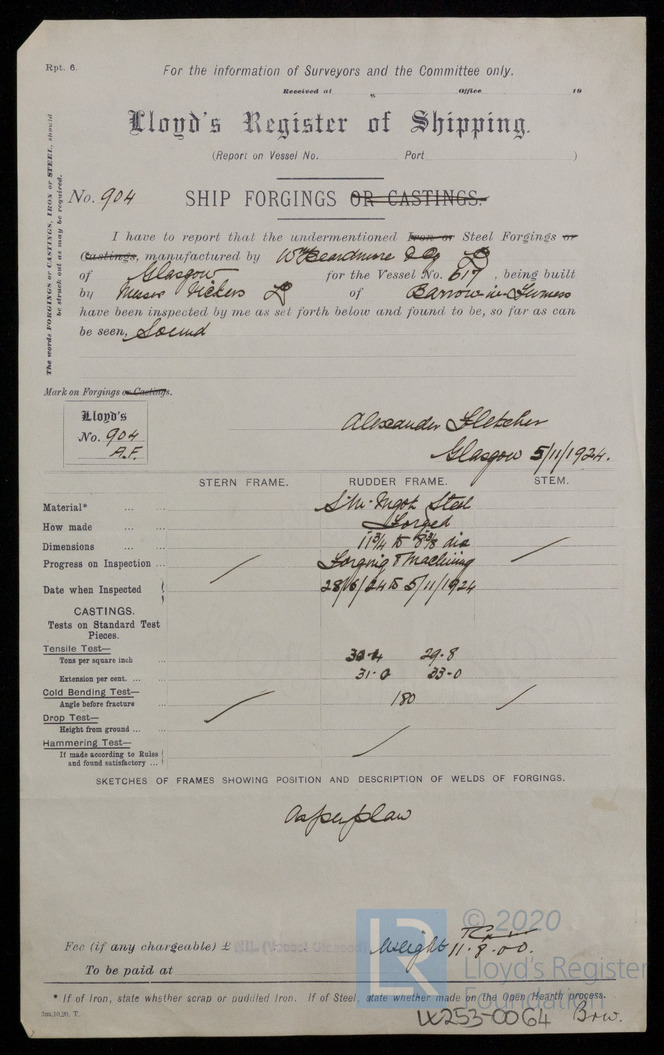 Rpt. 6.
For the information of Surveyors and the Committee only.
Received at Office 19
Lloyd's Register of Shipping.
(Report on Vessel No. Port )
No. 904 SHIP FORGINGS OR CASTINGS.
The words FORGINGS or CASTINGS, IRON or STEEL, should be struck out as may be required.
I have to report that the undermentioned Iron or Steel Forgings or
Castings, manufactured by Wm Beardmore & Co Ld
of Glasgow for the Vessel No. 617, being built
by Messrs Vickers Ld of Barrow-in-Furness
have been inspected by me as set forth below and found to be, so far as can
be seen, Sound
Mark on Forgings or Castings.
Lloyd's
No. 904
A.F.
Alexander Fletcher
Glasgow 5/11/1924.
STERN FRAME. RUDDER FRAME. STEM.
Material* ... ... S.M. Ingot Steel
How made ... ... Forged
Dimensions ... ... 11 3/4 to 8 3/8 dia
Progress on Inspection ... Forging & Machining
Date when Inspected 28/6/24 to 5/11/1924
CASTINGS.
Tests on Standard Test
Pieces.
Tensile Test—
Tons per square inch 30.4 29.8
Extension per cent. ... ... 31.0 33.0
Cold Bending Test—
Angle before fracture ... 180
Drop Test—
Height from ground ... ...
Hammering Test—
If made according to Rules
and found satisfactory ...
SKETCHES OF FRAMES SHOWING POSITION AND DESCRIPTION OF WELDS OF FORGINGS.
As per plan
Fee (if any chargeable) £
Weight 11.8.00.
To be paid at
* If of Iron, state whether scrap or puddled Iron. If of Steel, state whether made on the Open Hearth process.
3m,10,20. T.
W253-0064 Brw.
LR © 2020
Lloyd's Register
Foundation